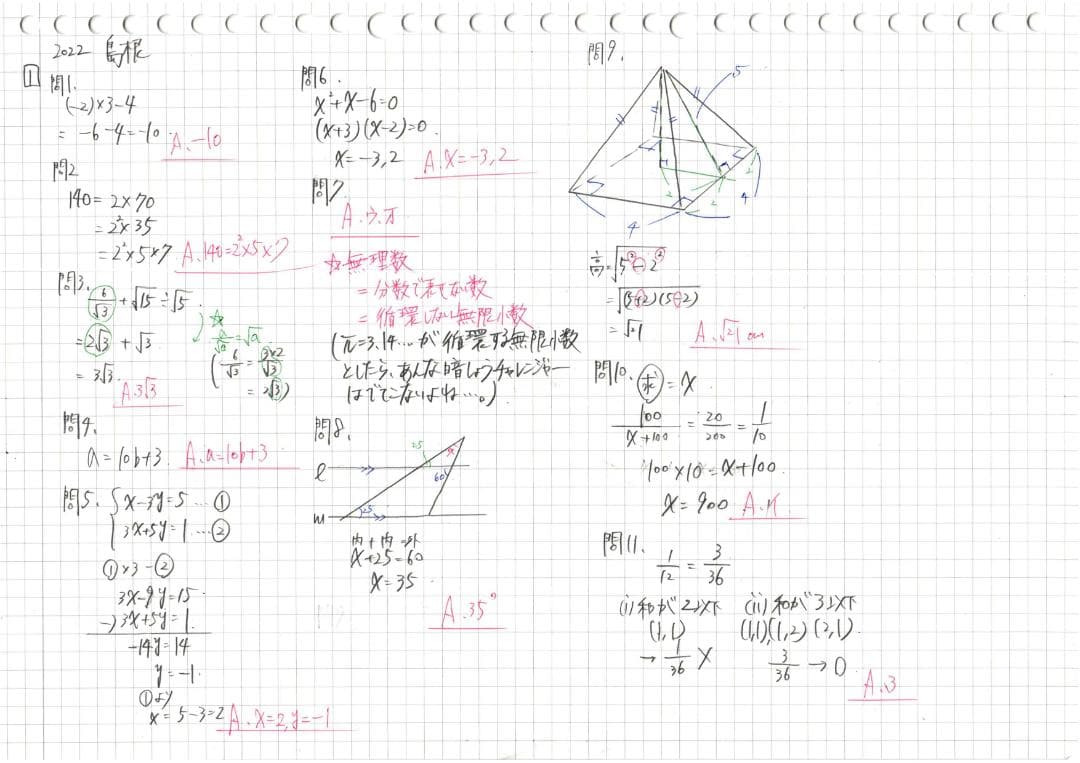 2022 島根
1
問1.
(-2)×3-4
= -6-4=-10.
A.-10
問2
140= 2×70
=2²×35
=2²×5×7
A.140=2²×5×7
問3.
6/√3 + √15÷√5
=2√3 + √3
= 3√3.
A.3√3
☆
a/√a=√a
(6/√3 = 3×2/√3
= 2√3)
問4.
a=10b+3. A.a=10b+3
問5.
x-3y=5 … ①
3x+5y=1. … ②
①×3-②
3x-9y=15
-) 3x+5y=1.
-14y=14
y=-1.
①より
x=5-3=2 A.x=2,y=-1
問6.
x²+x-6=0
(x+3)(x-2)=0.
x=-3,2 A.x=-3,2
問7.
A.ウ.オ
☆無理数
=分数で表せない数
=循環しない無限小数
(π=3.14…が循環する無限小数
としたら、あんな暗しょうチャレンジャー
はでてこないよね…。)
問8.
25
x
l
60
m
25
内+内=外
x+25=60
x=35.
A.35°
問9.
5
2
2
2
4
4
高=√5²-2²
=√(5+2)(5-2)
=√21
A.√21cm
問10.
求=x
100/x+100 = 20/200 = 1/10
100×10=x+100.
x=900
問11.
1/12 = 3/36
(i)和が2以下
(1,1)
→ 1/36 ×
(ii)和が3以下
(1,1)(1,2)(2,1).
3/36 → ○
A.3